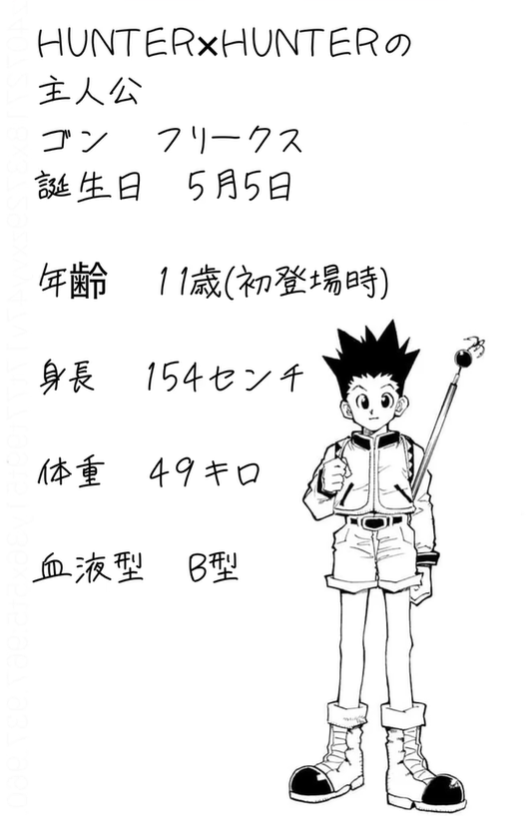 HUNTER×HUNTERの
主人公
ゴン　フリークス
誕生日　5月5日
年齢　11歳(初登場時)
身長　154センチ
体重　49キロ
血液型　B型